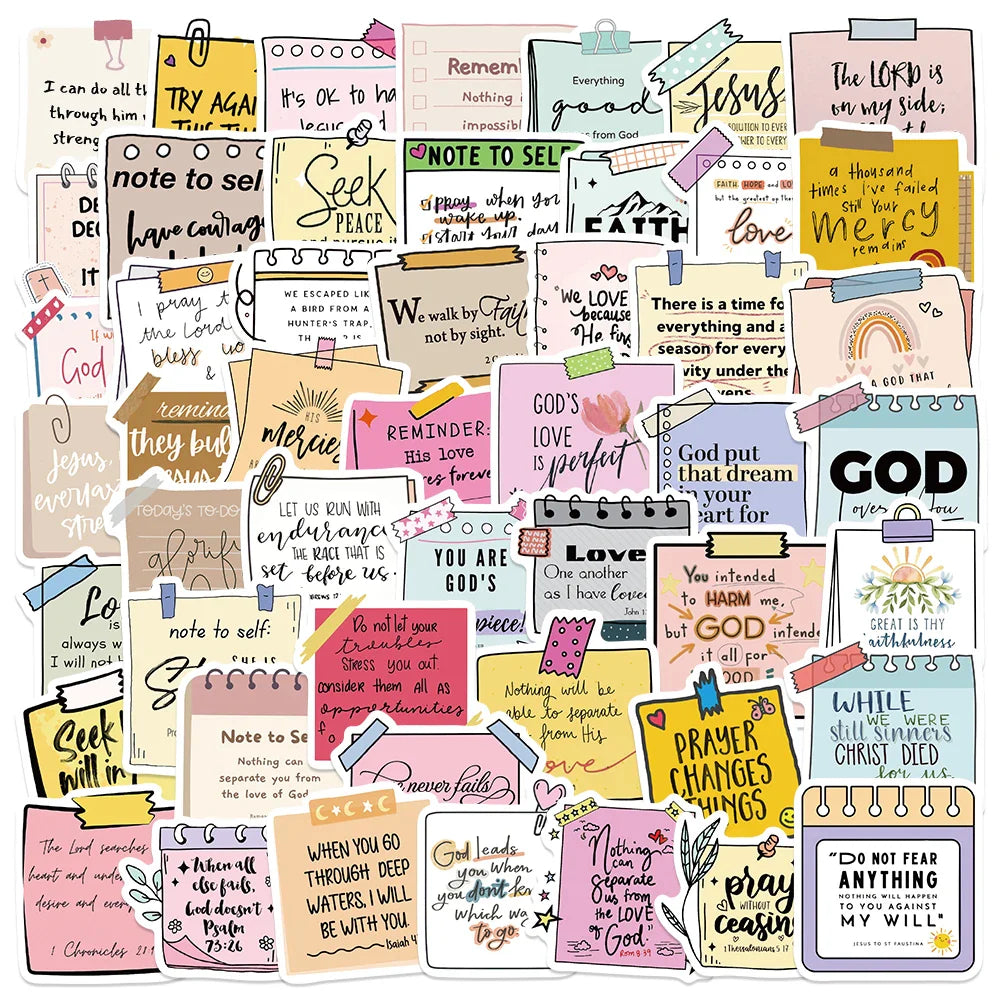 I can do all th
through him
streng
TRY AGAI
It's OK to ha
Jesus and
Remem
Nothing i
impossibl
Everything
good
es from God
Jesus
SOLUTION TO EVER
WER TO EVERY
The LORD is
on my side;
DE
DEC
IT
note to sel
have courag
Seek
PEACE
and pursue it
NOTE TO SELF
pray when you
wake up.
start your day
FAITH
FAITH HOPE and LO
but the greatest of the
love
a thousand
times I've failed
Still Your
Mercy
remains
If w
God
I pray t
the Lord
bless yo
&
WE ESCAPED LIK
A BIRD FROM A
HUNTER'S TRAP.
We walk by Fait
not by sight.
2 Co
We LOVE
because
He firs
There is a time fo
everything and a
season for every
vity under the
vens.
A GOD THAT
Jesus,
everlas
stre
remind
they bul
Jesus t
HIS
mercie
REMINDER:
His love
res forever
GOD'S
LOVE
IS perfect
God put
that dream
in your
heart for
GOD
over you
TODAY'S TO-DO
glorif
LET US RUN WITH
endurance
THE RACE THAT IS
set before us.
YOU ARE
GOD'S
piece!
Love
One another
as I have loved
John 1
You intended
to HARM me,
but GOD intende
it all for
OOD
GREAT IS THY
faithfulness
Lo
is
always w
I will not
note to self:
SHE IS
Do not let your
troubles
Stress you out.
consider them all as
opportunities
fo
Nothing will be
able to separate
from His
love
WHILE
WE WERE
still sinners
CHRIST DIED
for us
Seek
will in
Note to Se
Nothing can
separate you from
the love of God
e never fails
PRAYER
CHANGES
THINGS
The Lord searches
heart and unde
desire and every
1 Chronicles
When all
else fails,
God doesn't
Psalm
73:26
WHEN YOU GO
THROUGH DEEP
WATERS, I WILL
BE WITH YOU.
Isaiah 4
God leads
you when
you don't kn
which wa
to go.
Nothing
can
Separate
Us from
the LOVE
of God."
Rom 8:39
pray
WITHOUT
ceasin
1 Thessalonians 5:17
"DO NOT FEAR
ANYTHING
NOTHING WILL HAPPEN
TO YOU AGAINST
MY WILL"
JESUS TO ST FAUSTINA